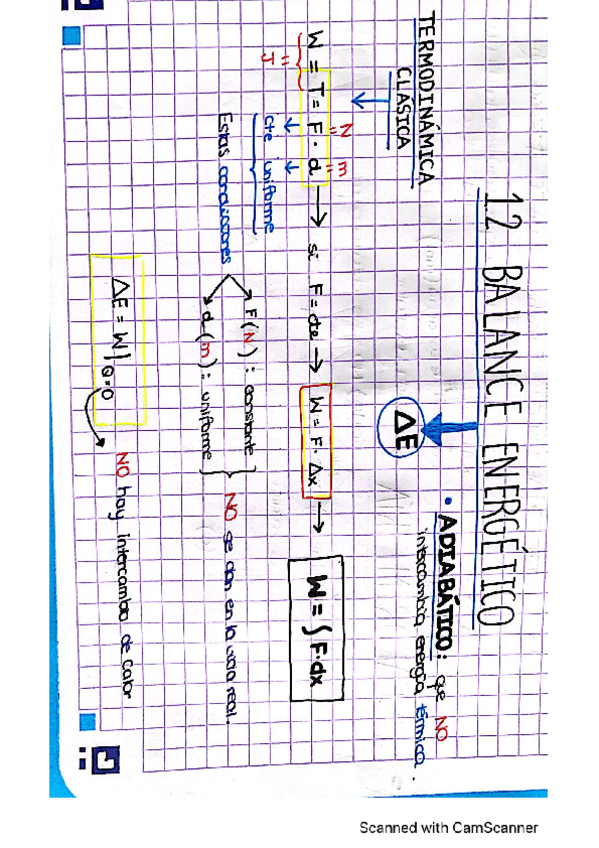 1.2 BALANCE ENERGÉTICO
TERMODINÁMICA
CLÁSICA
ΔE
• ADIABÁTICO: qe NO
intercambia energía térmica.
=N =m
W = T = F · d → si F = cte → W = F · Δx → W = ∫ F · dx
= J
cte uniforme
Estas condiciones
F (N) : constante
d (m) : uniforme
NO se dan en la vida real.
ΔE = W | Q=0
NO hay intercambio de calor
Scanned with CamScanner